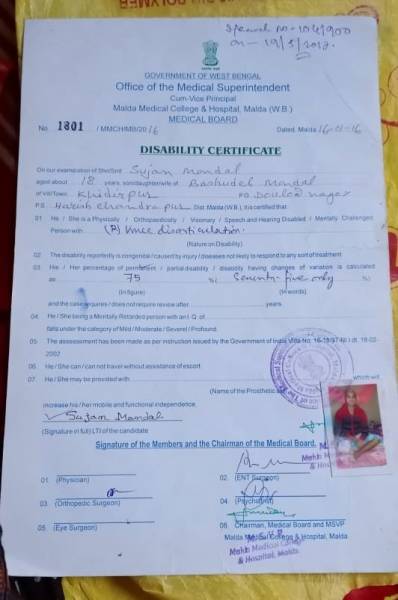 Speech no - 104/900
on - 19/5/2017.
GOVERNMENT OF WEST BENGAL
Office of the Medical Superintendent
Cum-Vice Principal
Malda Medical College & Hospital, Malda (W.B.)
MEDICAL BOARD
No. 1801 / MMCH/MB/2016 Dated, Malda 16-11-16
DISABILITY CERTIFICATE
On our examination of Shri/Smt Sujan Mondal
aged about 18 years, son/daughter/wife of Mondal
of Vill/Town Khidirpur P.O. Doulat nagar
P.S. Harish chandra pur Dist. Malda (W.B.) it is certified that.
01 He / She is a Physically / Orthopaedically / Visionary / Speech and Hearing Disabled / Mentally Challenged
Person with (R) knee disarticulation.
(Nature on Disability)
02 The disability reportedly is congenital / caused by injury / diseases not likely to respond to any sort of treatment
03 His / Her percentage of permanent / partial disability / disability having changes of variation is calculated
as 75 %( Seventy five only %)
(In figure) (In words)
and the case requires / does not require review after years.
04. He / She being a Mentally Retarded person with an I.Q. of
falls under the category of Mild / Moderate / Several / Profound.
05 The assessment has been made as per instruction issued by the Government of India dt. 18-02-
2002
06 He / She can / can not travel without assistance of escort.
07 He / She may be provided with which will
(Name of the Prosthetic
increase his / her mobile and functional independence.
Sujan Mandal
(Signature in full) LTI of the candidate
Signature of the Members and the Chairman of the Medical Board,
01. (Physician)
02. (ENT Surgeon)
03. (Orthopedic Surgeon)
04. (Psychiatrist)
05. (Eye Surgeon)
06. Chairman, Medical Board and MSVP
Malda Medical College & Hospital, Malda.
M.S.V.P.
Malda Medical College
& Hospital, Malda.